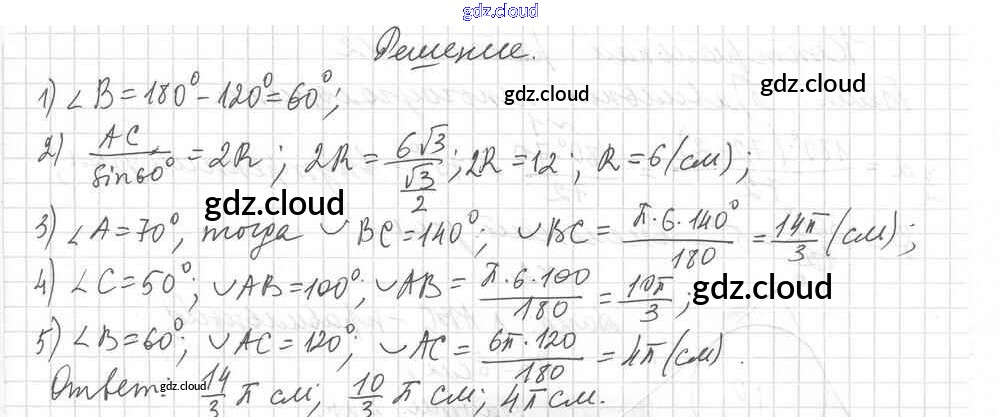 gdz.cloud
Решение.
1) ∠B = 180° - 120° = 60°; gdz.cloud gdz.cloud
2) AC/sin60° = 2R; 2R = 6√3/(√3/2); 2R = 12; R = 6 (см);
gdz.cloud
3) ∠A = 70°, тогда ◡ BC = 140°; ◡ BC = π·6·140°/180 = 14π/3 (см);
4) ∠C = 50°; ◡ AB = 100°, ◡ AB = π·6·100/180 = 10π/3; gdz.cloud
5) ∠B = 60°; ◡ AC = 120°; ◡ AC = 6π·120/180 = 4π (см).
Ответ: gdz.cloud 14/3 π см; 10/3 π см; 4π см.